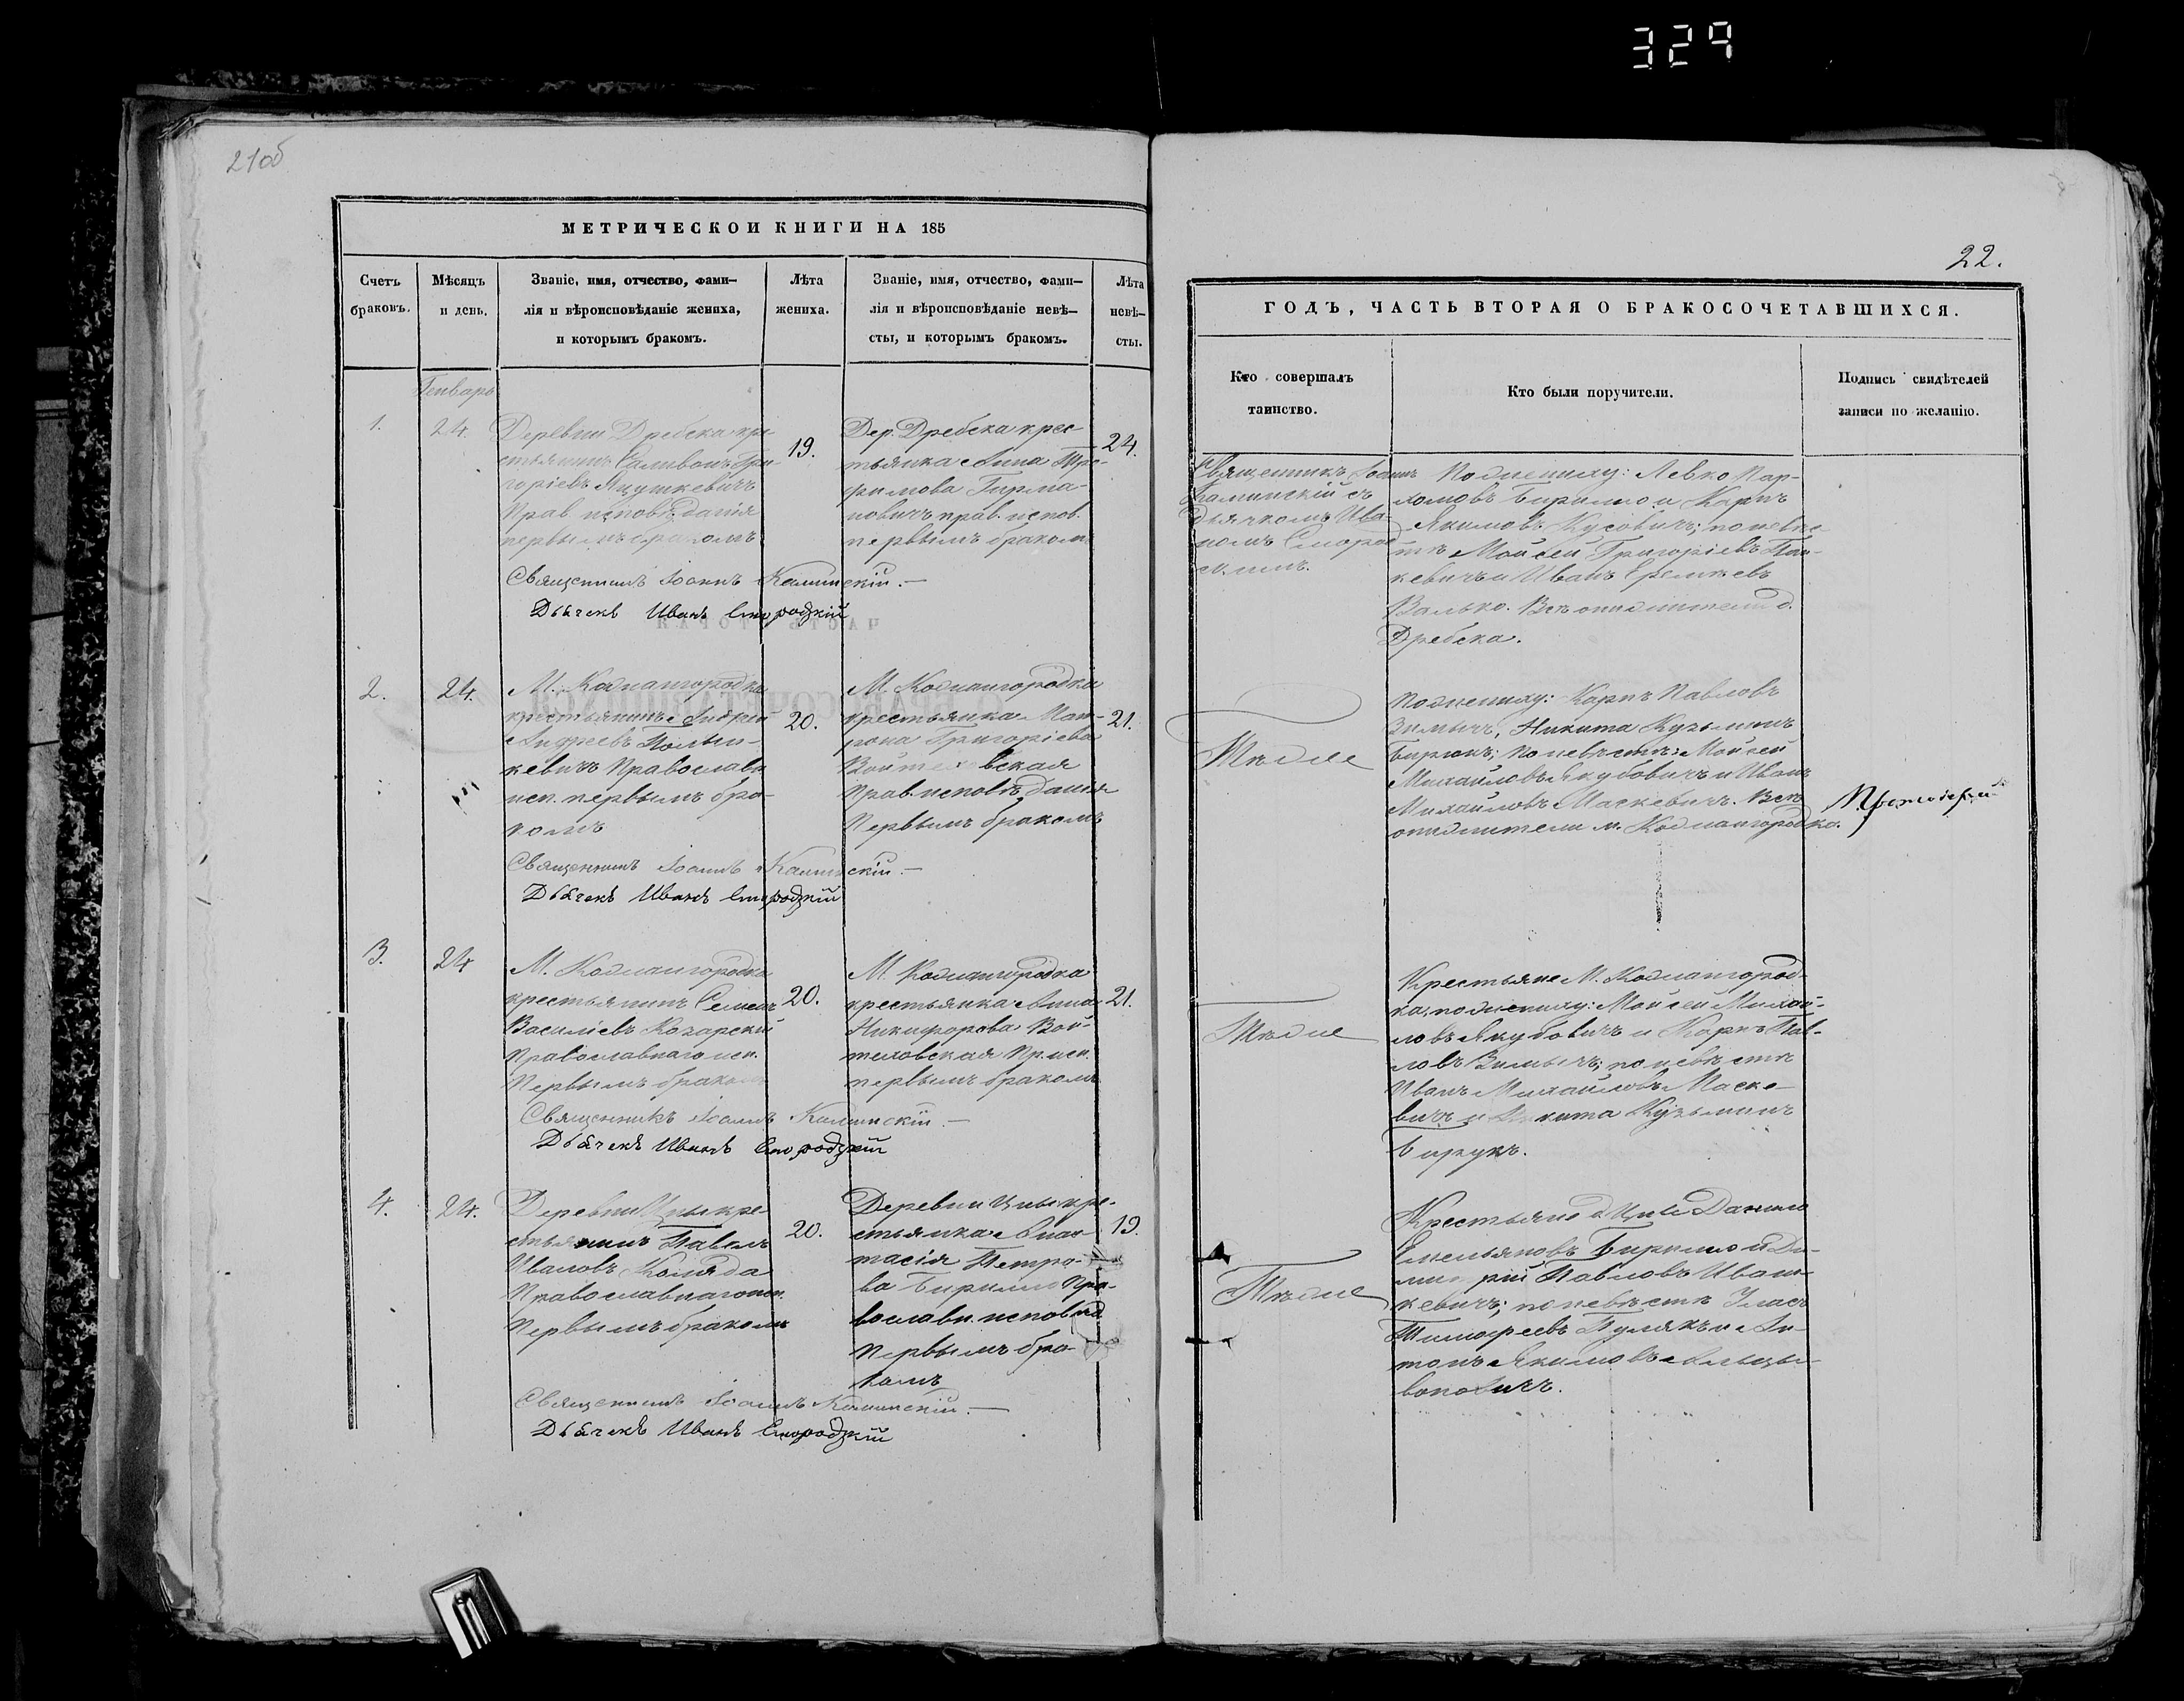 329
21об
МЕТРИЧЕСКОЙ КНИГИ НА 185
Счетъ браковъ.
Мѣсяцъ и день.
Званіе, имя, отчество, фами-
лія и вѣроисповѣданіе жениха,
и которымъ бракомъ.
Лѣта жениха.
Званіе, имя, отчество, фами-
лія и вѣроисповѣданіе невѣ-
сты, и которымъ бракомъ.
Лѣта невѣ-
сты.
Генварь
1.
24.
Деревни Дребска кре
стьянинъ Саливонъ Гри-
горіевъ Яцушкевичъ
Прав исповѣданія
первымъ бракомъ
19.
Дер. Дребска крес
тьянка Анна Тро-
фимова Гирма-
новичъ прав. испов.
первымъ бракомъ
24.
Священникъ Іоаннъ Калинскій.—
Дьячекъ Иванъ Смородскій
2.
24.
М. Кожангородка
крестьянинъ Андрей
Андреевъ
кевичъ Православн
исп. первымъ бра-
комъ
20.
М. Кожангородка
крестьянка Мат-
рона Григоріева
Войтеховская
Прав. исповѣданія
Первымъ бракомъ
21.
Священникъ Іоаннъ Калинскій.—
Дьячекъ Иванъ Смородскій
3.
24
М. Кожангородка
крестьянинъ Семенъ
Василіевъ Козарскій
Православнаго исп.
Первымъ бракомъ
20.
М. Кожангородка
крестьянка Анна
Никифорова Вой-
теховская Пр. исп.
первымъ бракомъ
21.
Священникъ Іоаннъ Калинскій.—
Дьячекъ Иванъ Смородскій
4.
24.
Деревни Цны кре
стьянинъ Павелъ
Ивановъ Коляда
Православнаго исп.
Первымъ бракомъ
20.
Деревни Цны кре-
стьянка Анас
тасія Петро-
ва Бирилло Пра-
вославн. исповѣд
Первымъ бра-
комъ
19.
Священникъ Іоаннъ Калинскій.—
Дьячекъ Иванъ Смородскій
22.
ГОДЪ, ЧАСТЬ ВТОРАЯ О БРАКОСОЧЕТАВШИХСЯ.
Кто совершалъ
таинство.
Кто были поручители.
Подпись свидѣтелей
записи по желанію.
Священникъ Іоаннъ
Калинскій съ
дьячкомъ Ива-
номъ Смород
скимъ.
По жениху: Левко Пар-
хомовъ Бирилло и Карпъ
Якимовъ Кусовичъ; по невѣс
тѣ Мойсей Григоріевъ Пат-
кевичъ и Иванъ Еремѣевъ
Валько. Всѣ д.
Дребска.
Тѣже
По жениху: Карпъ Павловъ
Зимычъ, Никита Кузьминъ
Бирюкъ; по невѣстѣ: Мойсей
Михайловъ Якубовичъ и Иванъ
Михайловъ Маскевичъ. Всѣ
м. Кожангородка.
Тѣже
Крестьяне М. Кожангород-
ка, по жениху: Мойсей Михай-
ловъ Якубовичъ и Карпъ Пав-
ловъ Зимычъ; по невѣстѣ
Иванъ Михайловъ Маске-
вичъ и Никита Кузьминъ
Бирукъ.
Тѣже
Крестьяне д Цны Данило
Емельяновъ Бирилло и Ди-
митрій Павловъ Иваш-
кевичъ; по невѣстѣ Уласъ
Тимофеевъ Пулякъ и Ан-
тонъ Якимовъ
воповичъ.